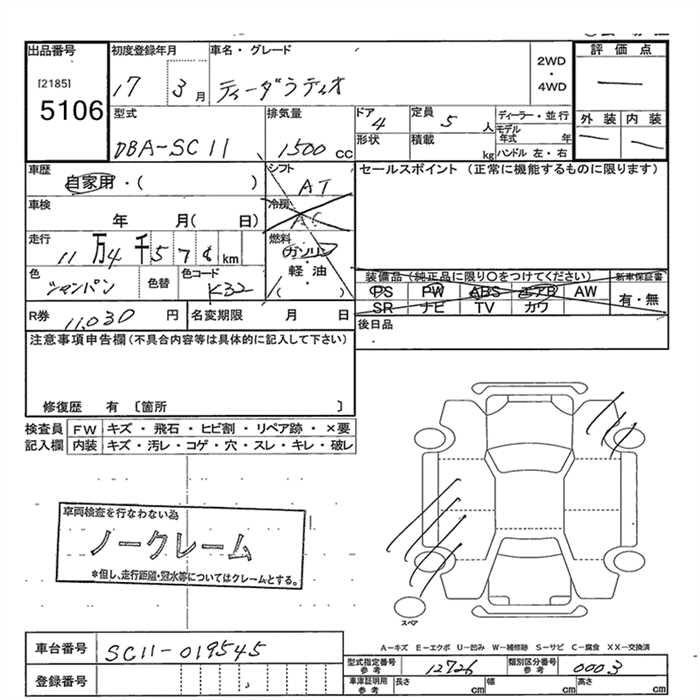 出品番号 初度登録年月 車名・グレード 評価点
[2185] 17 3月 ティーダラティオ 2WD・4WD
5106
型式 排気量 ドア 4 定員 5 人 ディーラー・並行 外装 内装
DBA-SC11 1500 CC 形状 積載 kg モデル年式 年 ハンドル 左・右
車歴 自家用・( ) シフト AT セールスポイント (正常に機能するものに限ります)
車検 年 月( 日) 冷房 AC
走行 11万4千57 km 燃料 ガソリン 軽・油 ( )
色 シャンパン 色替 色コード K32
装備品 (純正品に限り○をつけてください) 新車保証書
PS PW ABS エアB AW 有・無
SR ナビ TV カワ
R券 11,030 円 名変期限 月 日 後日品
注意事項申告欄 (不具合内容等は具体的に記入して下さい)
修復歴 有 〔箇所 〕
検査員 FW キズ・飛石・ヒビ割・リペア跡・×要
記入欄 内装 キズ・汚レ・コゲ・穴・スレ・キレ・破レ
車両検査を行なわない為
ノークレーム
*但し、走行距離・冠水等についてはクレームとする。
スペア
A-キズ E-エクボ U-凹み W-補修跡 S-サビ C-腐食 XX-交換済
車台番号 SC11-019545
型式指定番号 参考 12726 類別区分番号 参考 0003
登録番号
車庫証明用 参考 長さ cm 幅 cm 高さ cm